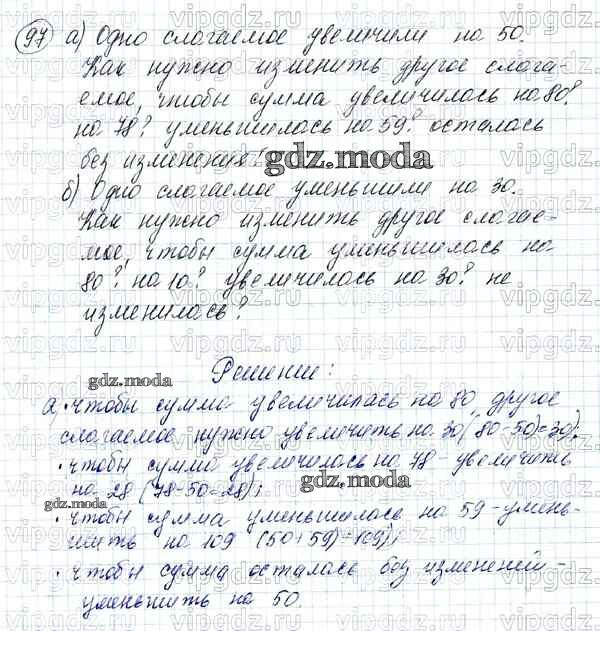 97 а) Одно слагаемое увеличили на 50.
Как нужно изменить другое слага-
емое, чтобы сумма увеличилась на 80?
на 78? уменьшилась на 59? осталась
без изменения?
gdz.moda
б) Одно слагаемое уменьшили на 30.
Как нужно изменить другое слагае-
мое, чтобы сумма уменьшилась на
80? на 10? увеличилась на 30? не
изменилась?
Решение:
gdz.moda
а) • чтобы сумма увеличилась на 80 другое
слагаемое нужно увеличить на 30 (80-50)=30);
gdz.moda
• чтобы сумма увеличилась на 78 - увеличить
gdz.moda
на 28 (78-50=28);
gdz.moda
• чтобы сумма уменьшилась на 59 - умень-
шить на 109 (50+59)=109);
• чтобы сумма осталась без изменений -
уменьшить на 50.
vipgdz.ru